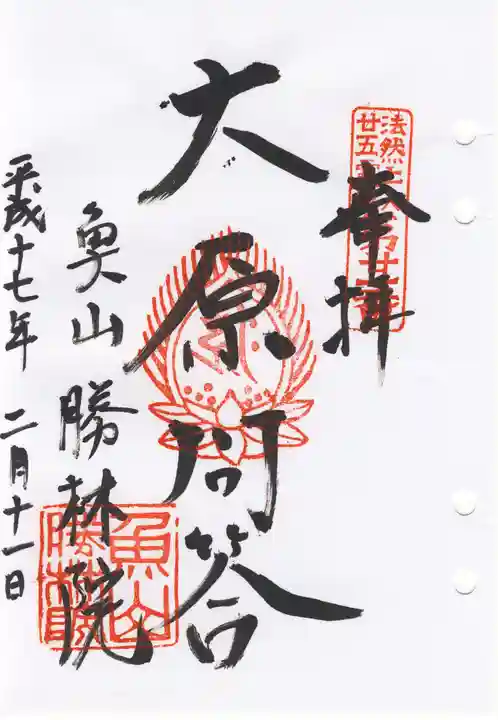 奉拝
法然上人
廿五霊
第廿一番
大原問答
魚山勝林院
平成十七年 二月十一日
魚山
勝林院